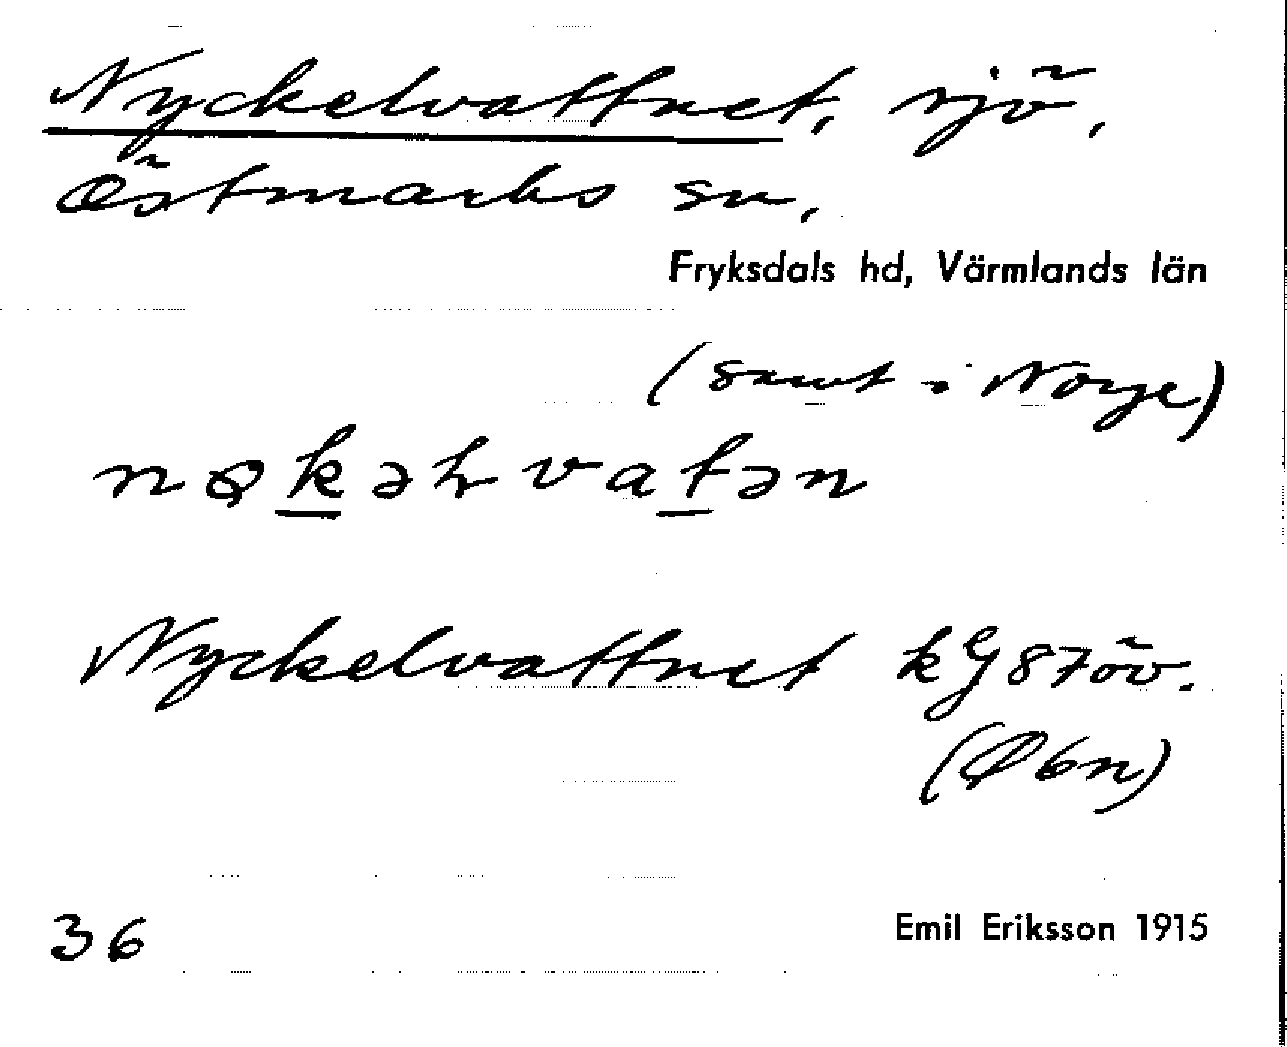 Nyckelvattnet, sjö,
Östmarks sn,
Fryksdals hd, Värmlands län
(samt i Norge)
Nyckelvattnet kG87öv.
36
Emil Eriksson 1915